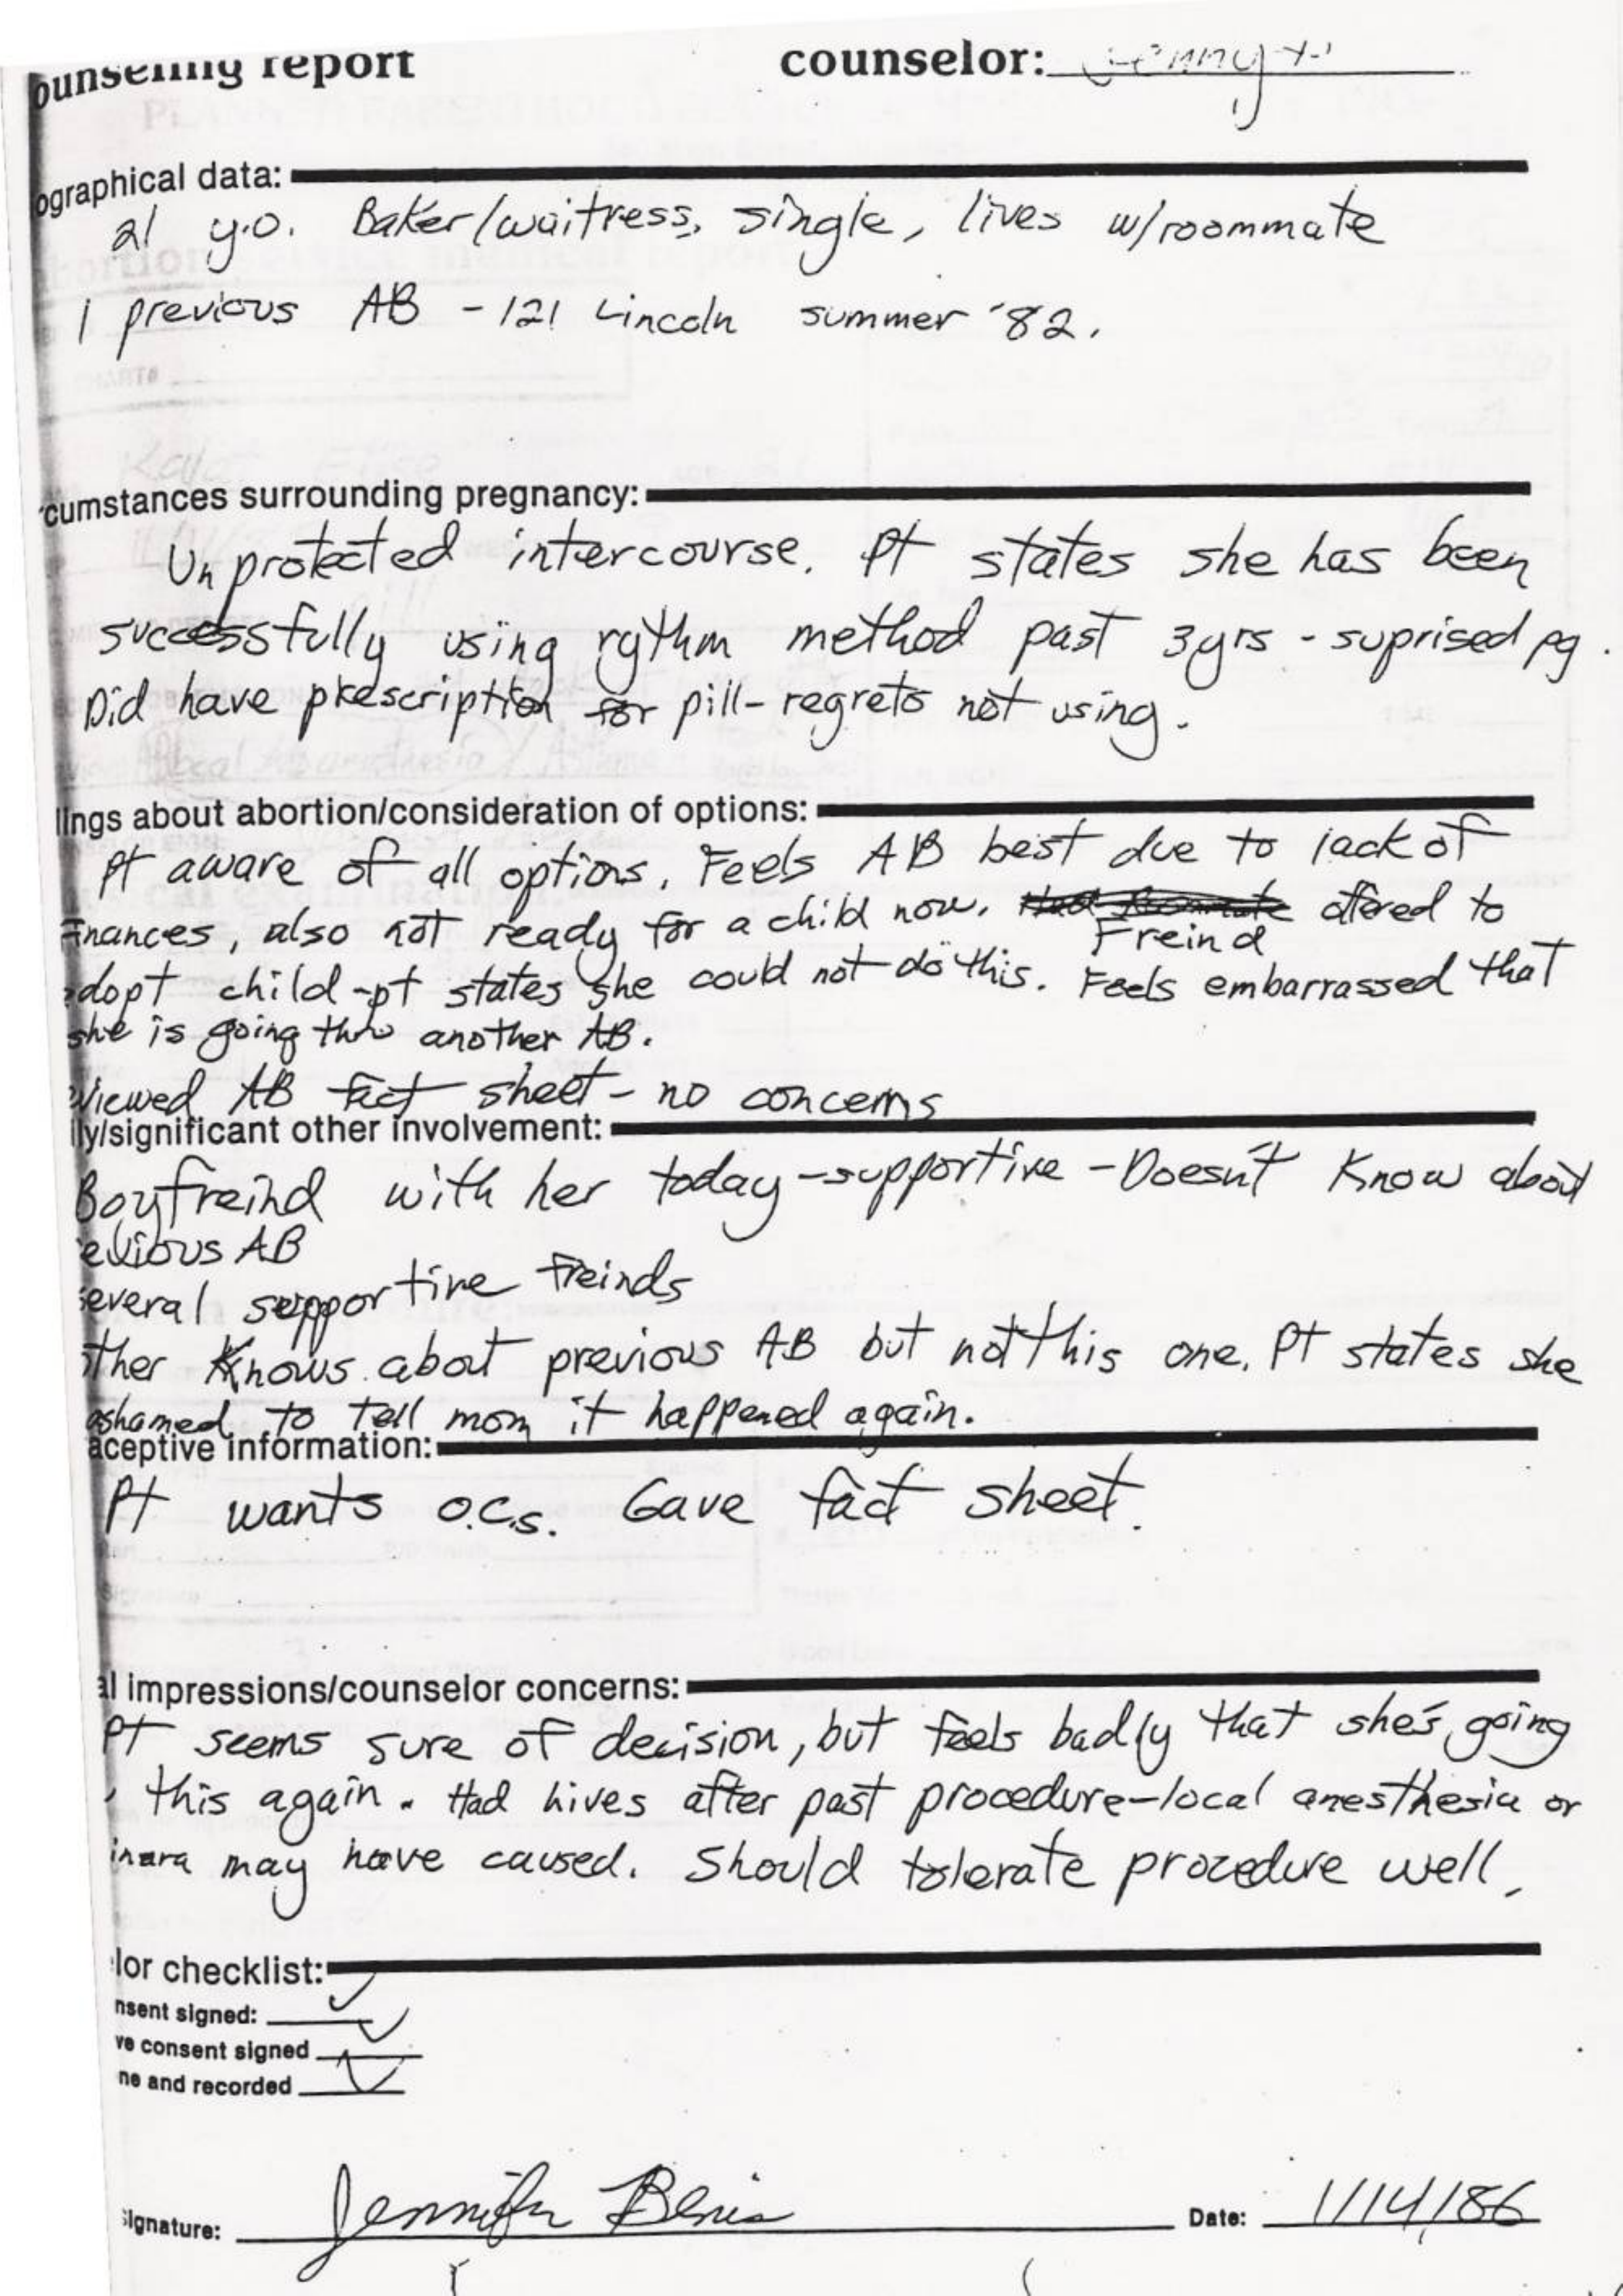 ounseling report counselor: Jenny
ographical data:
21 y.o. Baker/waitress, single, lives w/roommate
1 previous AB - 121 Lincoln summer '82.
cumstances surrounding pregnancy:
Unprotected intercourse. Pt states she has been
successfully using rythm method past 3yrs - suprised pg.
Did have prescription for pill - regrets not using.
lings about abortion/consideration of options:
Pt aware of all options. Feels AB best due to lack of
Finances, also not ready for a child now. offered to
Freind
adopt child - pt states she could not do this. Feels embarrassed that
she is going thru another AB.
eviewed AB fact sheet - no concerns
ily/significant other involvement:
Boyfreind with her today - supportive - Doesn't Know about
evious AB
several supportive Freinds
other Knows about previous AB but not this one. Pt states she
ashamed to tell mom it happened again.
aceptive information:
Pt wants o.c.s. Gave fact sheet.
al impressions/counselor concerns:
Pt seems sure of decision, but feels badly that she's going
this again. Had hives after past procedure - local anesthesia or
may have caused. Should tolerate procedure well,
lor checklist:
nsent signed: ✓
ve consent signed ✓
ne and recorded ✓
Signature: Jennifer Date: 1/14/86